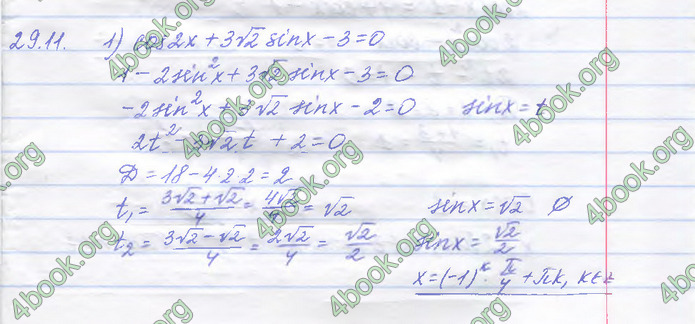 29.11. 1) cos2x + 3√2 sinx - 3 = 0
1 - 2sin²x + 3√2 sinx - 3 = 0
-2sin²x + 3√2 sinx - 2 = 0 sinx = t
2t² - 3√2t + 2 = 0
D = 18 - 4·2·2 = 2
t₁ = (3√2 + √2)/4 = 4√2/4 = √2 sinx = √2 ∅
t₂ = (3√2 - √2)/4 = 2√2/4 = √2/2 sinx = √2/2
x = (-1)ᵏ · π/4 + πk, k∈z
4book.org